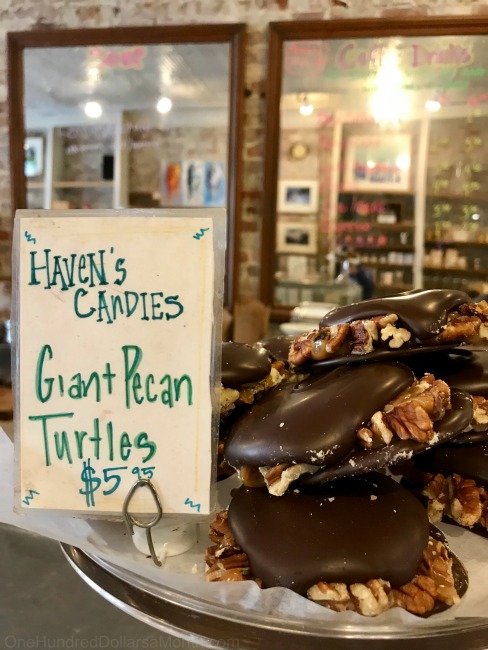 Coffee Drinks
HAVEN'S
CANDIES
Giant Pecan
Turtles
$5.95
OneHundredDollarsaMonth.com